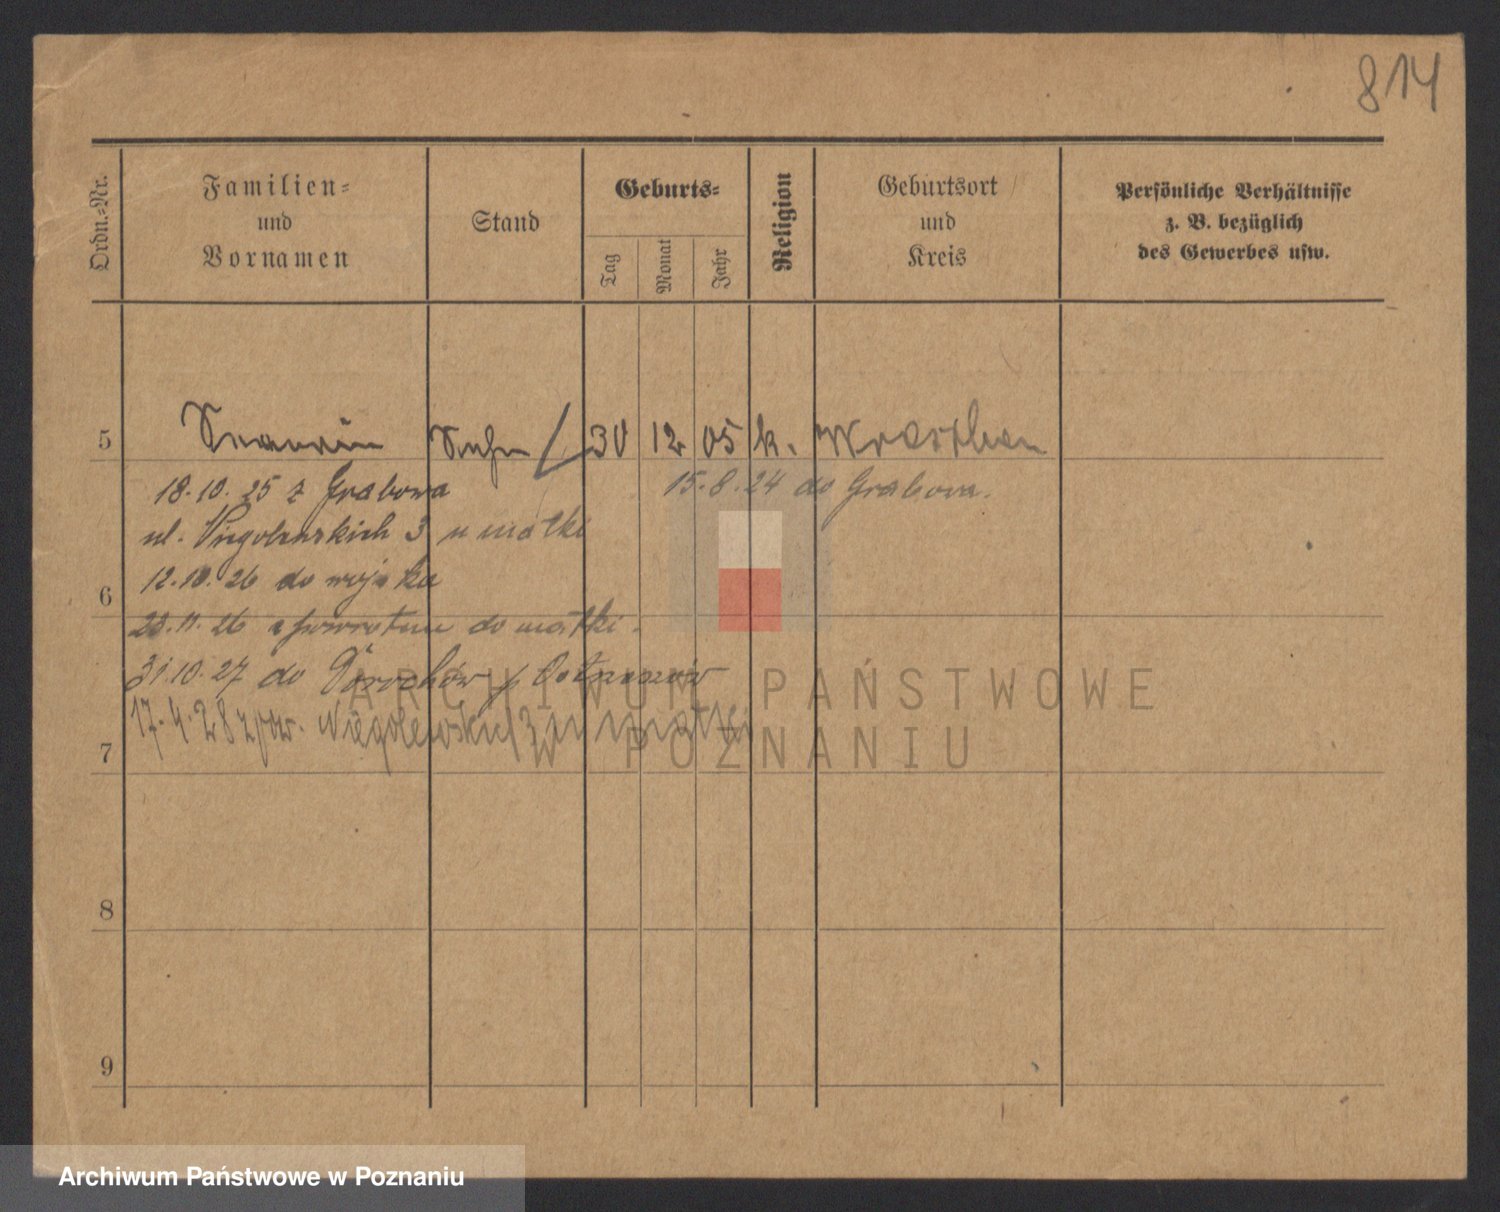 814
Ordn.-Nr.
Familien-
und
Vornamen
Stand
Geburts-
Tag
Monat
Jahr
Religion
Geburtsort
und
Kreis
Persönliche Verhältnisse
z. B. bezüglich
des Gewerbes usw.
5 Sohn 30 12 05 k.
18.10.25 z Grabowa 15.8.24 do Grabowa.
ul. 3 u matki
12.10.26 do wojska
6
26 z powrotem do matki.
31.10.27 do
17.4.28 z pow. Niegolewskich 3 u matki
7
8
9
ARCHIWUM PAŃSTWOWE
W POZNANIU
Archiwum Państwowe w Poznaniu